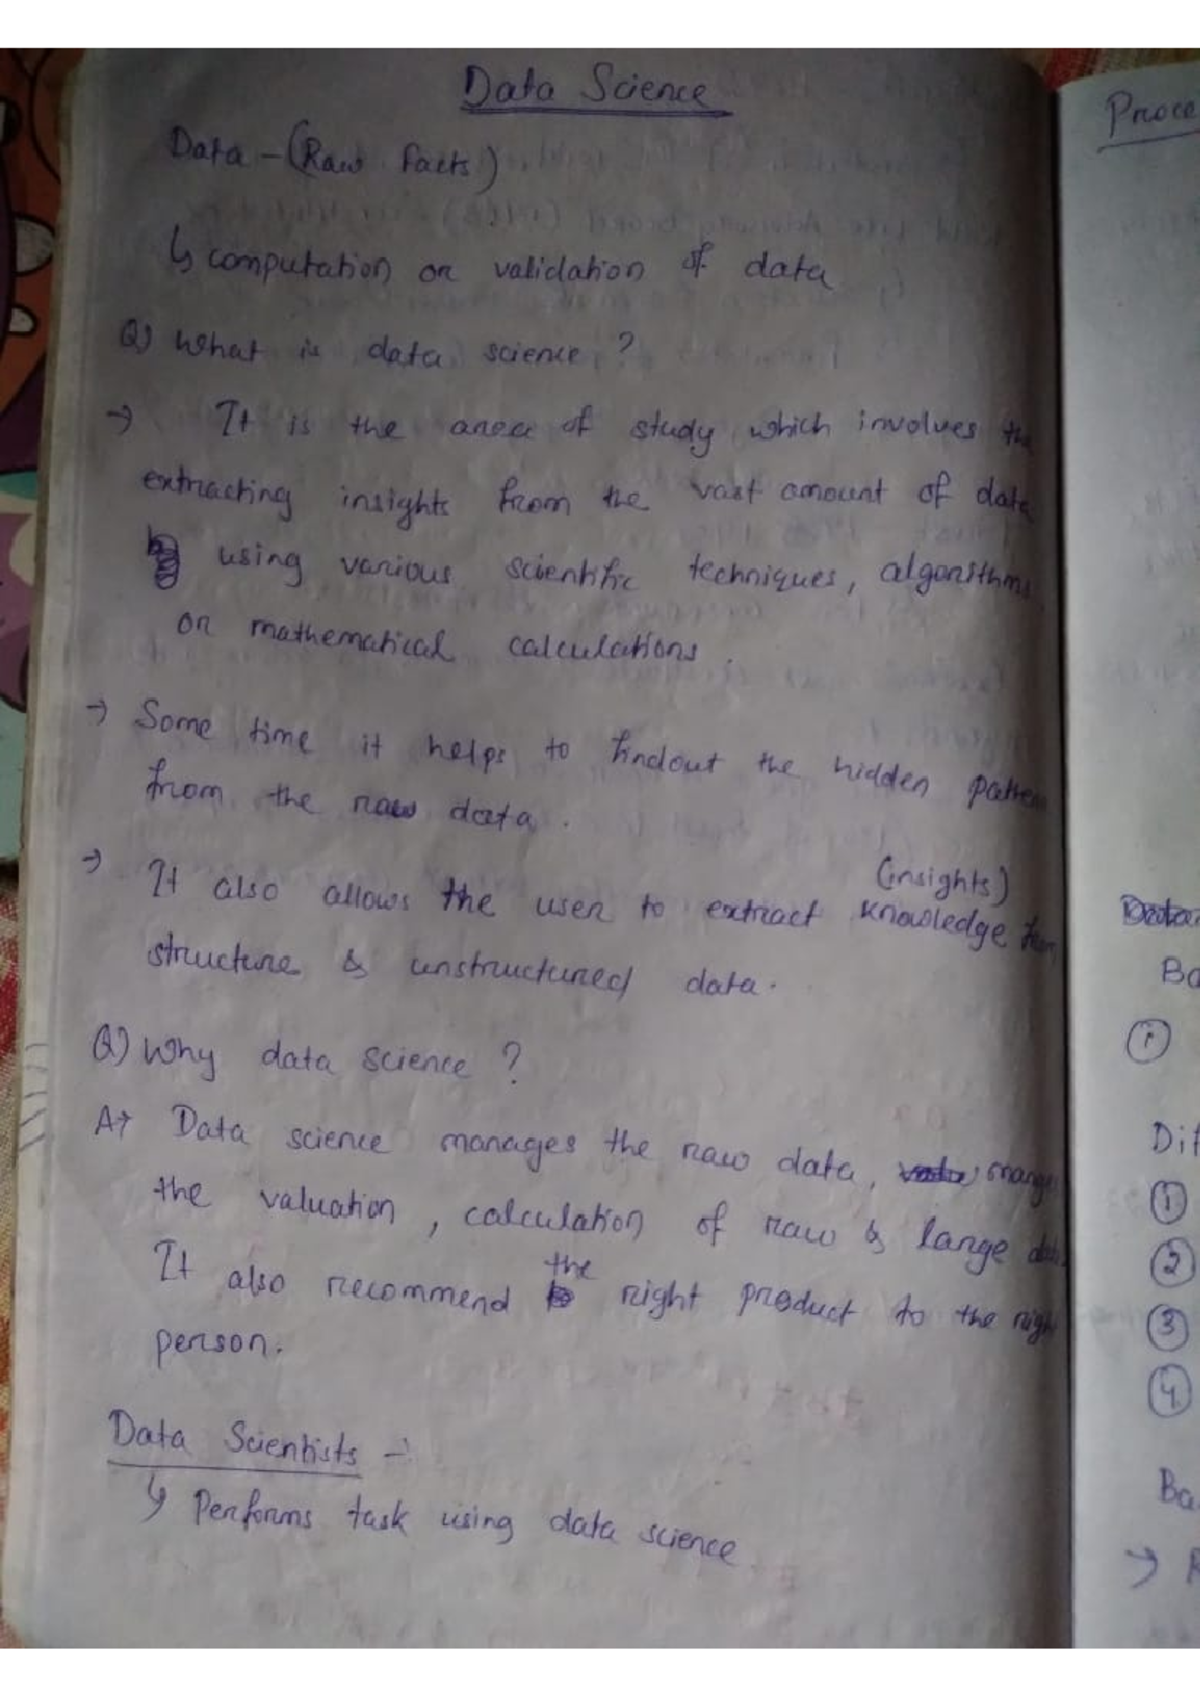 Data Science
Data - (Raw facts)
↳ computation or validation of data
Q) What is data science ?
→ It is the area of study which involves the
extracting insights from the vast amount of data
using various scientific techniques, algorithms
or mathematical calculations.
→ Some time it helps to findout the hidden pattern
from the raw data.
(insights)
→ It also allows the user to extract knowledge from
structure & unstructured data.
Q) Why data science ?
A→ Data science manages the raw data, manage
the valuation, calculation of raw & large data
It also recommend the right product to the right
person.
Data Scientists →
↳ Performs task using data science
Proce
Data
Ba
Dif
①
②
③
④
Ba
→ R